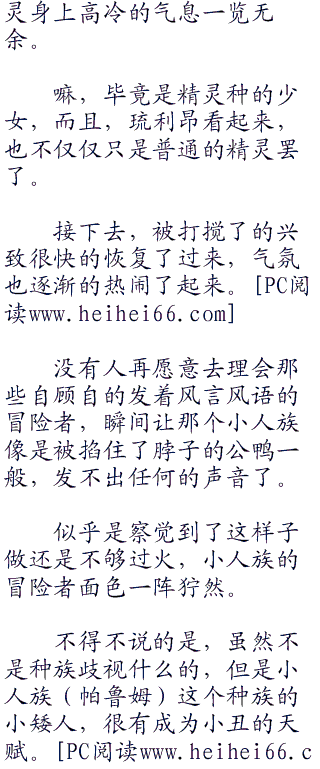 灵身上高冷的气息一览无
余。
嘛，毕竟是精灵种的少
女，而且，琉利昂看起来，
也不仅仅只是普通的精灵罢
了。
接下去，被打搅了的兴
致很快的恢复了过来，气氛
也逐渐的热闹了起来。[PC阅
读www.heihei66.com]
没有人再愿意去理会那
些自顾自的发着风言风语的
冒险者，瞬间让那个小人族
像是被掐住了脖子的公鸭一
般，发不出任何的声音了。
似乎是察觉到了这样子
做还是不够过火，小人族的
冒险者面色一阵狞然。
不得不说的是，虽然不
是种族歧视什么的，但是小
人族（帕鲁姆）这个种族的
小矮人，很有成为小丑的天
赋。[PC阅读www.heihei66.c